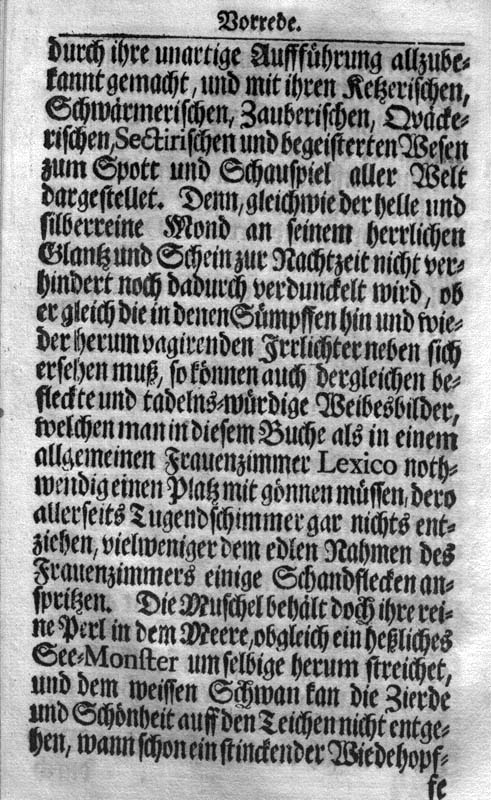 Vorrede.
durch ihre unartige Auffführung allzube-
kannt gemacht, und mit ihren Ketzerischen,
Schwärmerischen, Zauberischen, Qväcke-
rischen, Sectirischen und begeisterten Wesen
zum Spott und Schauspiel aller Welt
dargestellet. Denn, gleichwie der helle und
silberreine Mond an seinem herrlichen
Glantz und Schein zur Nachtzeit nicht ver-
hindert noch dadurch verdunckelt wird, ob
er gleich die in denen Sümpffen hin und wie-
der herum vagirenden Irrlichter neben sich
ersehen muß, so können auch dergleichen be-
fleckte und tadelns-würdige Weibesbilder,
welchen man in diesem Buche als in einem
allgemeinen Frauenzimmer Lexico noth-
wendig einen Platz mit gönnen müssen, dero
allerseits Tugendschimmer gar nichts ent-
ziehen, vielweniger dem edlen Nahmen des
Frauenzimmers einige Schandflecken an-
spritzen. Die Muschel behält doch ihre rei-
ne Perl in dem Meere, obgleich ein heßliches
See-Monster um selbige herum streichet,
und dem weissen Schwan kan die Zierde
und Schönheit auff den Teichen nicht entge-
hen, wann schon ein stinckender Wiedehopf-
fe